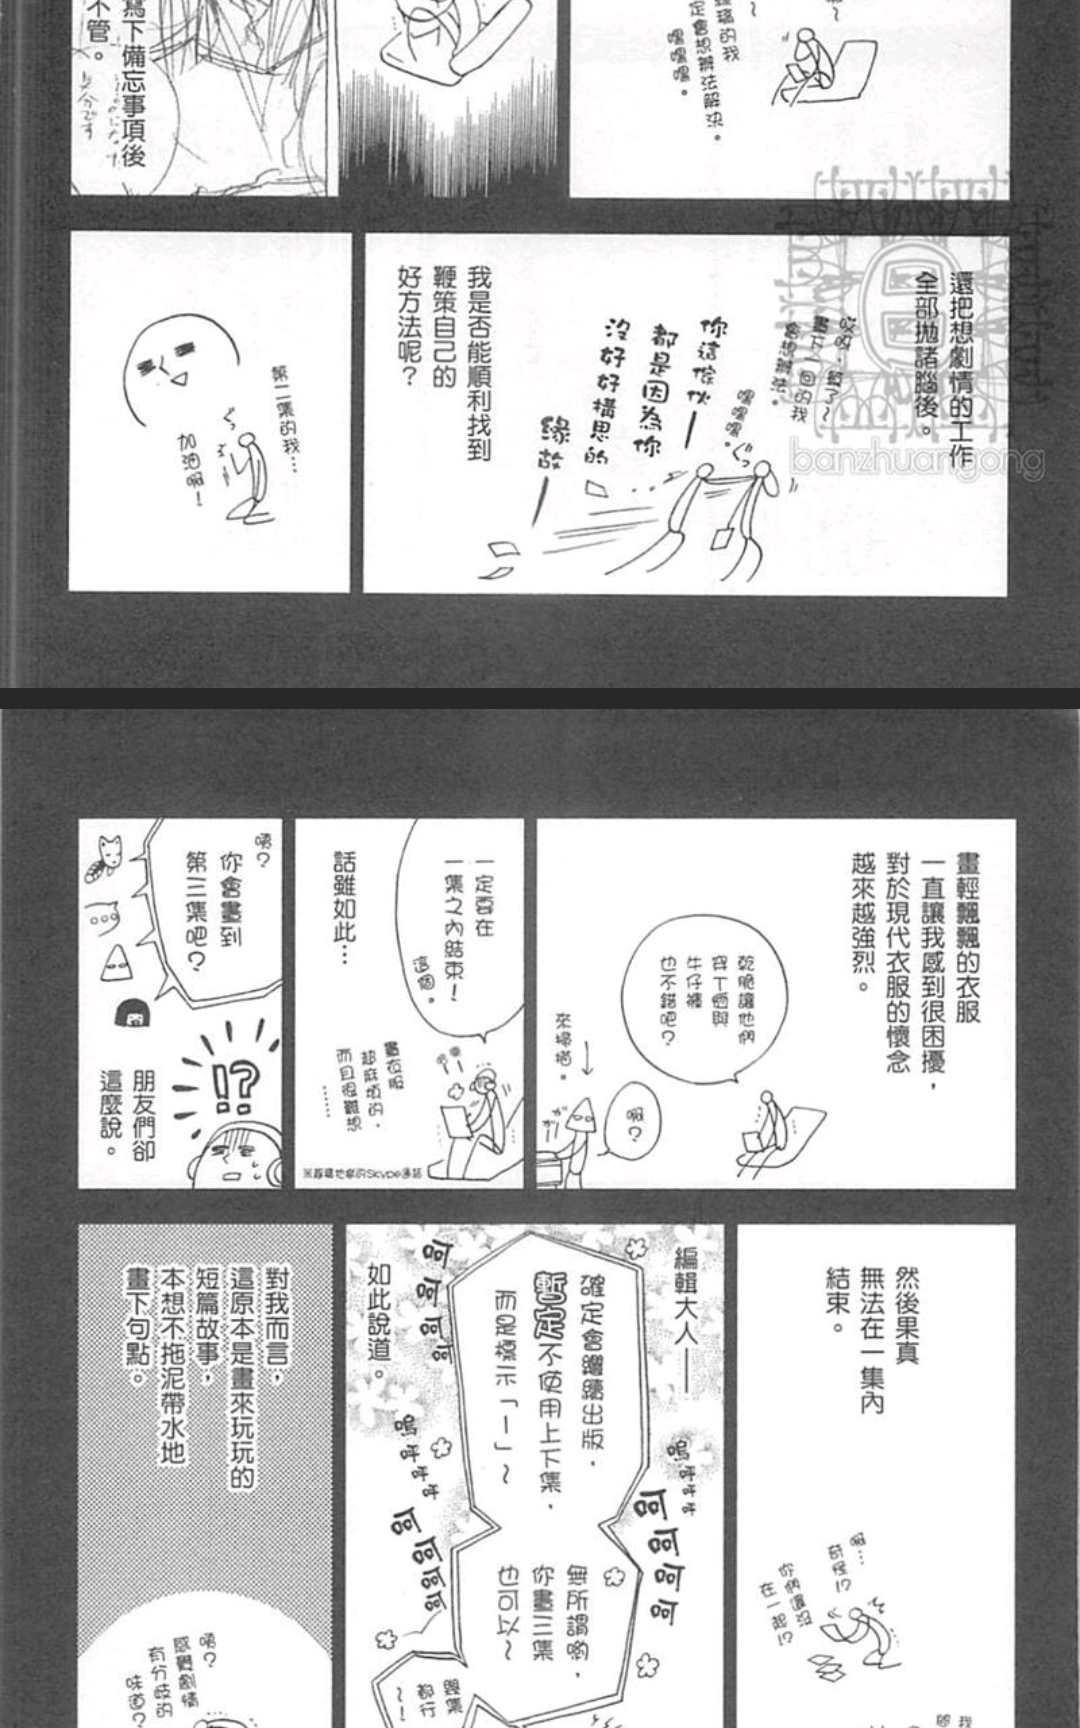 定會想辦法解決。
嘿嘿嘿。
寫下備忘事項後
不管。
還把想劇情的工作
全部拋諸腦後。
哎呀，算了～
畫下一回的我
會想辦法。
嘿嘿嘿。
你這傢伙—
都是因為你
沒好好構思的
緣故—
我是否能順利找到
鞭策自己的
好方法呢？
第二集的我…
加油啊！
banzhuangong
畫輕飄飄的衣服
一直讓我感到很困擾，
對於現代衣服的懷念
越來越強烈。
乾脆讓他們
穿T恤與
牛仔褲
也不錯吧？
來掃描。
啊？
一定要在
一集之內結束！
這個。
話雖如此…
畫衣服
超麻煩的，
而且很難想
……
唷？
你會畫到
第三集吧？
!?
朋友們卻
這麼說。
然後果真
無法在一集內
結束。
啊…
奇怪!?
你們還沒
在一起!?
編輯大人——
確定會繼續出版，
暫定不使用上下集，
而是標示「I」～
無所謂喲，
你畫三集
也可以～
幾集
都行
～！
呵呵呵呵
嗚呼呼呼
呵呵呵呵
嗚呼呼呼
呵呵呵呵
如此說道。
對我而言，
這原本是畫來玩玩的
短篇故事，
本想不拖泥帶水地
畫下句點。
唷？
感覺劇情
有分歧的
味道？